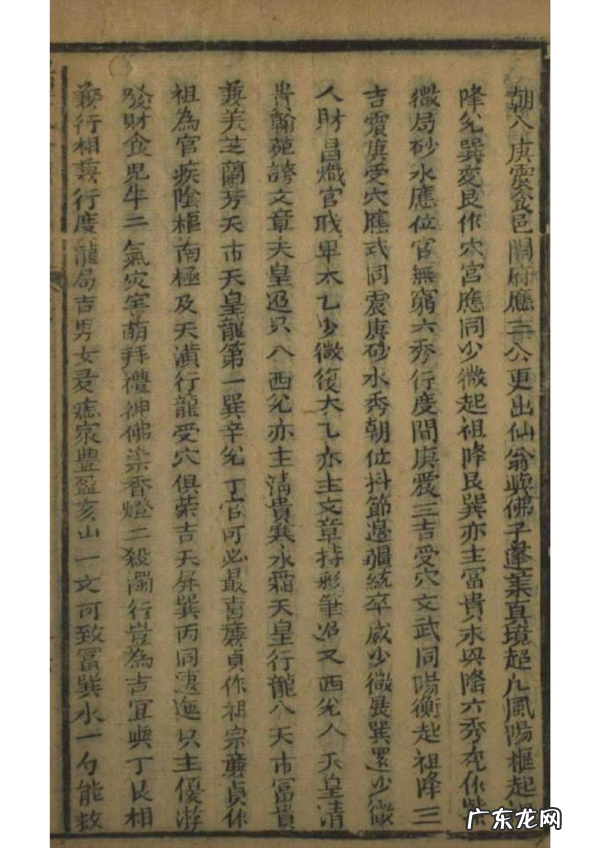 朝入庚震食邑開府應三公更出仙翁與佛子蓬萊真境超凡風陽樞起
降兊巽变艮作穴宮應同少微起祖降艮巽亦主冨貴末與降六秀充作紫
微局砂水應位官無窮六秀行度間庚震三吉受穴文武同陽衡起祖降三
吉震庚受穴應式同震庚砂水秀朝位抖節邊疆統卒威少微艮巽還少微
人財昌熾官戝畢太乙少微復太乙亦主文章持彩筆迢又酉兊入天皇清
貴翰苑誇文章天皇迢只八酉兊亦主清貴寒水霜天皇行龍八天市冨貴
蕪美芝蘭芳天市天皇龍第一巽辛兊丁官可必最喜蔗貞作祖宗蔗貞作
祖為官疾陰樞南極及天潢行龍受穴俱荣吉天屏巽丙同邐迤只主優游
發財食見牛二氣灾宝萌拜禮神佛崇香燈二殺濁行豈為吉宜與丁艮相
蕪行相蕪行度龍局吉男女灵痣家豊盈亥山一文可致冨巽水一勺能救
广东龙网